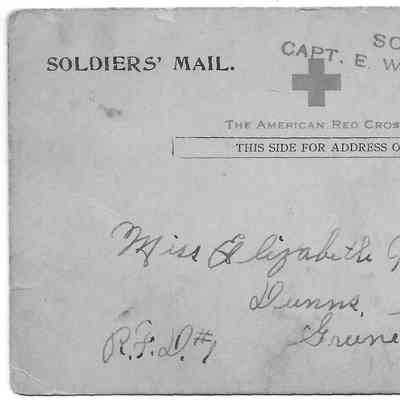 SO
CAPT. E. W
SOLDIERS' MAIL.
THE AMERICAN RED CROS
THIS SIDE FOR ADDRESS O
Miss Elizabethe
Dunns,
R.F.D.#1
Grune